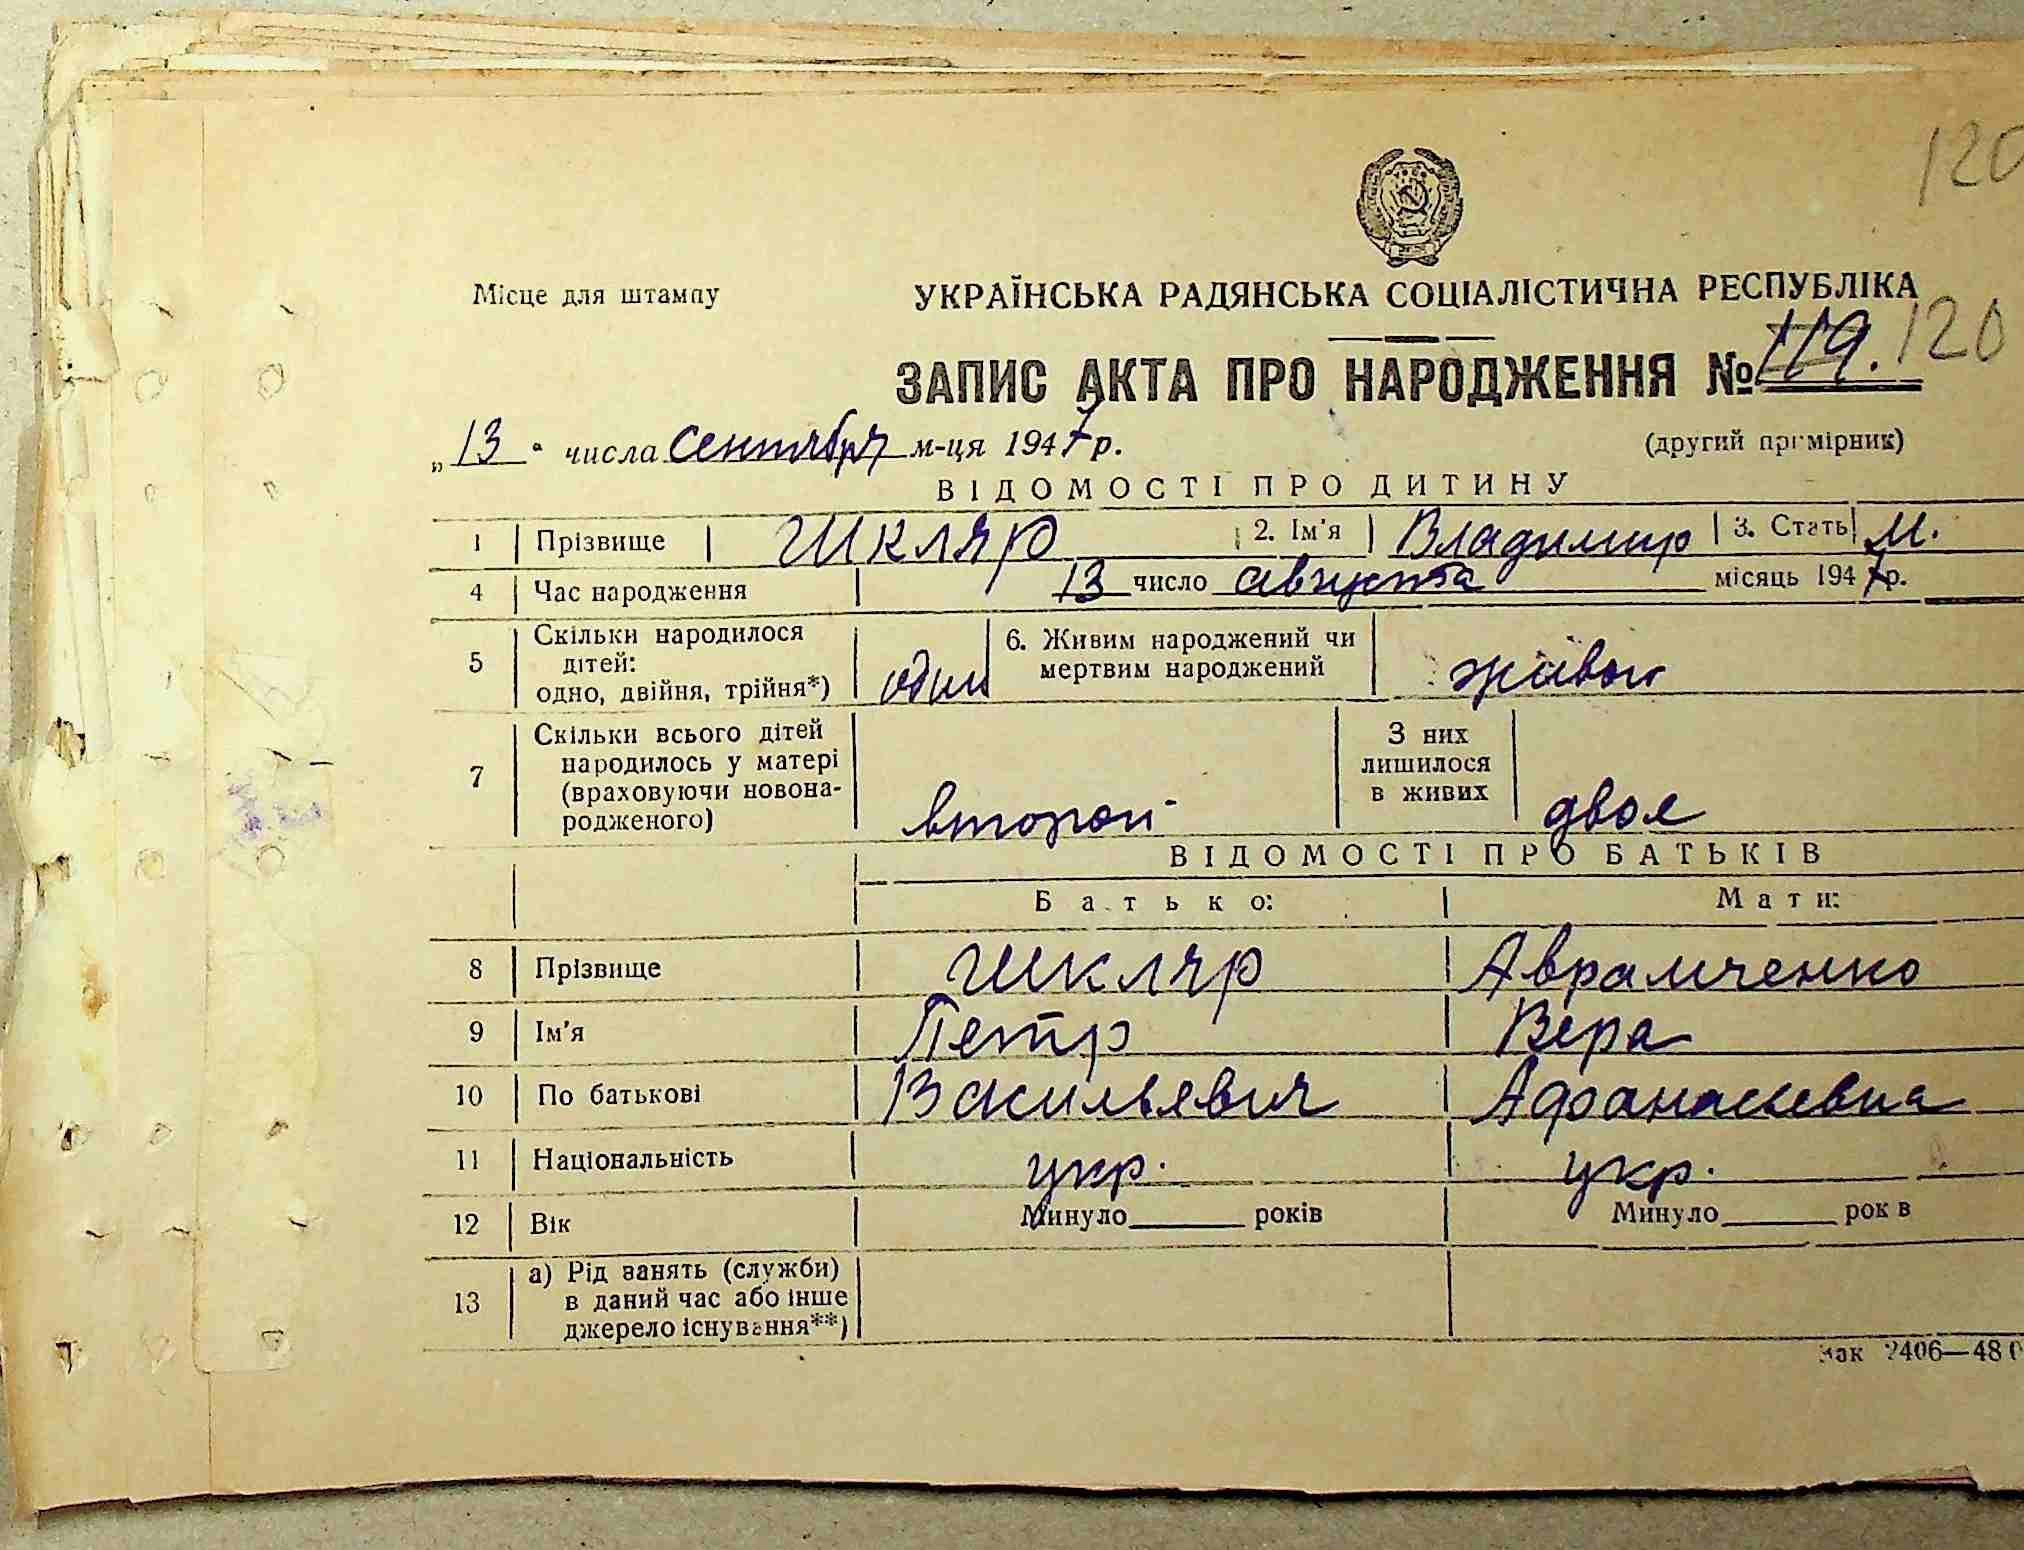 120
Місце для штампу
УКРАЇНСЬКА РАДЯНСЬКА СОЦІАЛІСТИЧНА РЕСПУБЛІКА
ЗАПИС АКТА ПРО НАРОДЖЕННЯ № 119. 120
„13" числа сентября м-ця 1947 р.
(другий примірник)
ВІДОМОСТІ ПРО ДИТИНУ
1 Прізвище Шкляр 2. Ім'я Владимир 3. Стать М.
4 Час народження 13 число августа місяць 1947 р.
5 Скільки народилося дітей: одно, двійня, трійня*) один 6. Живим народжений чи мертвим народжений живым
7 Скільки всього дітей народилось у матері (враховуючи новонародженого) второй З них лишилося в живих двое
ВІДОМОСТІ ПРО БАТЬКІВ
Батько: Мати:
8 Прізвище Шкляр Аврамченко
9 Ім'я Петр Вера
10 По батькові Васильевич Афанасьевна
11 Національність укр. укр.
12 Вік Минуло років Минуло рок в
13 а) Рід занять (служби) в даний час або інше джерело існування**)
Зак 2406—48